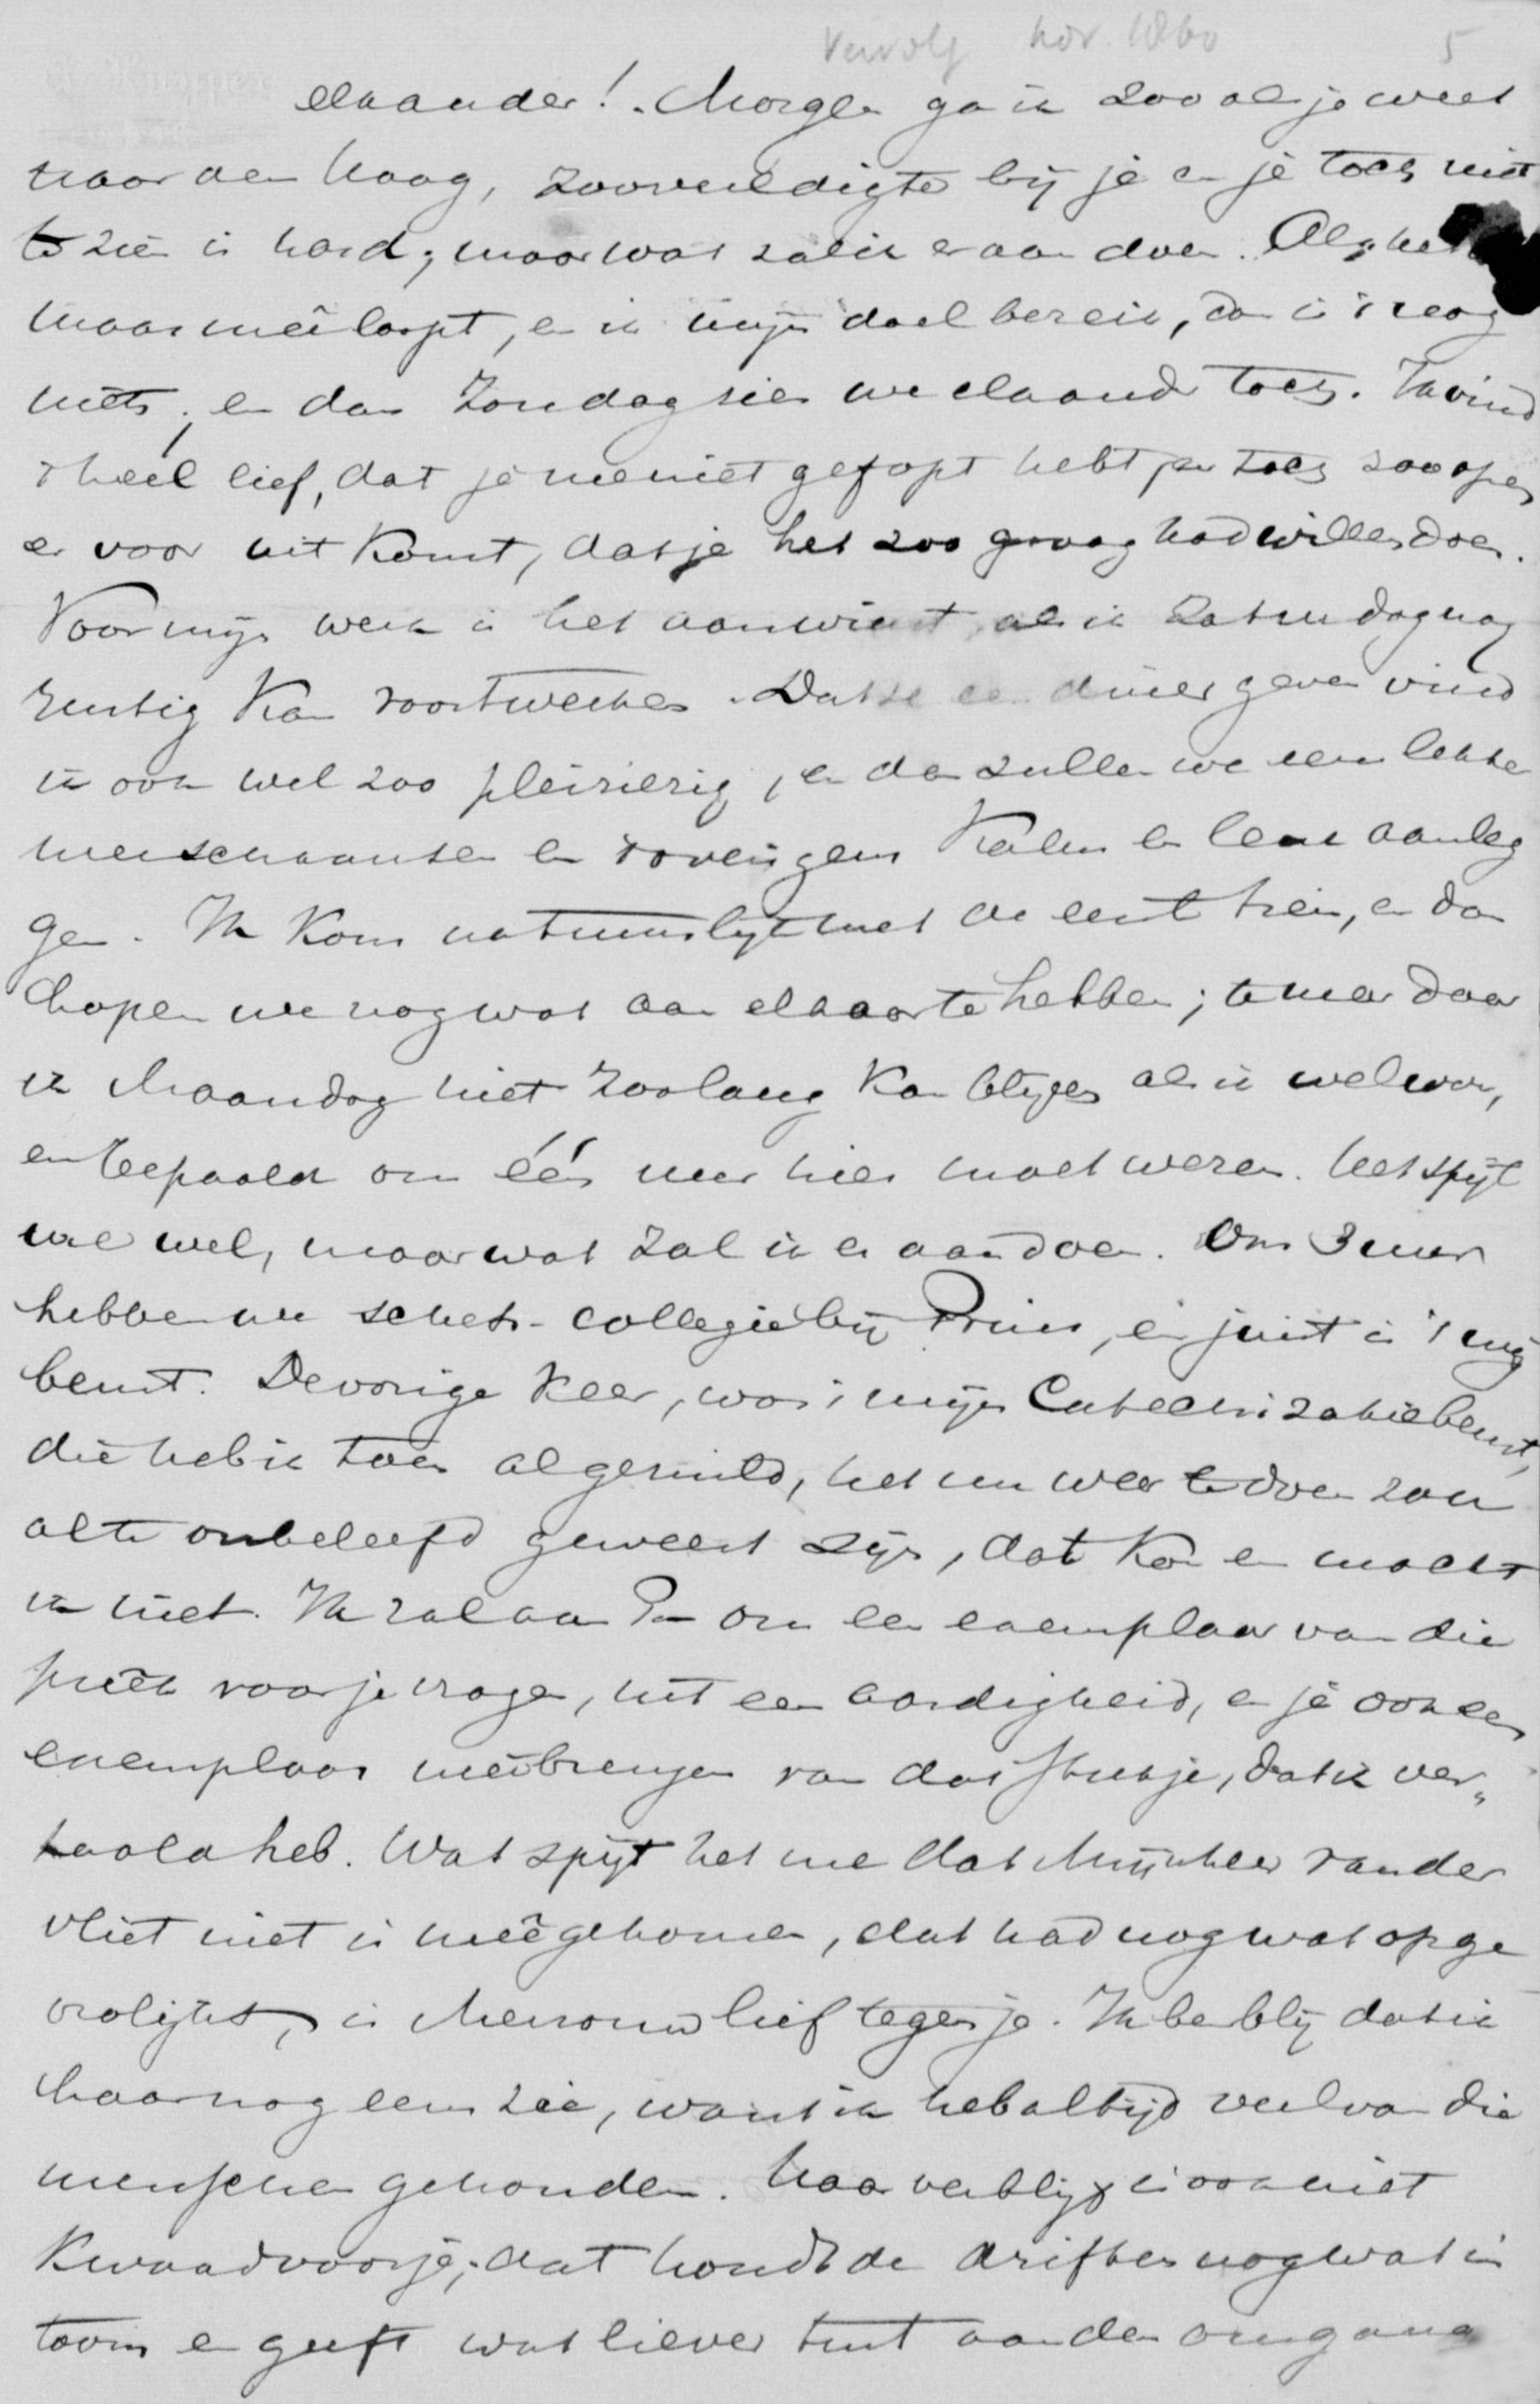 Vervolg Nov. 1860 5
elkander! Morgen ga ik zooals je weet
naar den Haag, zoo vereldigte bij je en je toch niet
te zien is hard, maar wat zal ik er aan doen. Als het
maar meêloopt, en ik mijn doel bereik, dan is 't nog
niets; en dan Zondag zien we elkander toch. Ik vind
't heel lief, dat je me niet gefopt hebt en toch zoo open
er voor uit komt, dat je het zoo graag had willen doen.
Voor mijn werk is het aanwinst, als ik Zaturdag nog
rustig kan voortwerken. Dat ze een diner geven vind
ik ook wel zoo pleizierig, en dan zullen we een lekker
en kalm en leuk aanleg
gen. Ik kom natuurlijk met de eerste trein, en dan
hopen we nog wat aan elkaar te hebben; te meer daar
ik Maandag niet zoolang kan blijven als ik wel wou,
en bepaald om één uur hier moet wezen. Het spijt
me wel, maar wat zal ik er aan doen. Om 3 uur
hebben we schets-collegie bij Prins, en juist is 't mijn
beurt. De vorige keer, was 't mijn Catechizatiebeurt,
die heb ik toen al geruild, het nu weer te doen zou
al te onbeleefd geweest zijn, dat kon en mocht
ik niet. Ik zal aan Pa om een exemplaar van die
preek voor je vragen, uit een aardigheid, en je ook een
exemplaar meêbrengen van dat stukje, dat ik ver„
taald heb. Wat spijt het me dat Mijnheer van der
Vliet niet is meêgekomen, dat had nog wat opge
vrolijkt, is Mevrouw lief tegen je. Ik ben blij dat ik
haar nog eens zie, want ik heb altijd veel van die
menschen gehouden. Haar verblijf is ook niet
kwaad voor je; dat houdt de driften nog wat in
toom en geeft wat liever tint aan den omgang